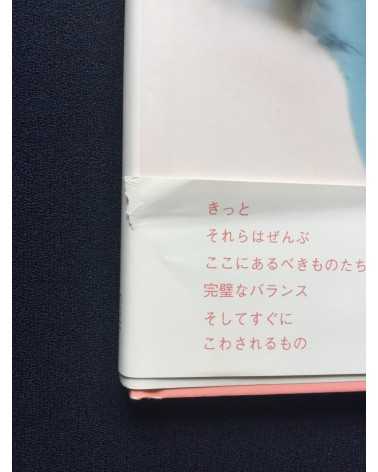 きっと
それらはぜんぶ
ここにあるべきものたち
完璧なバランス
そしてすぐに
こわされるもの